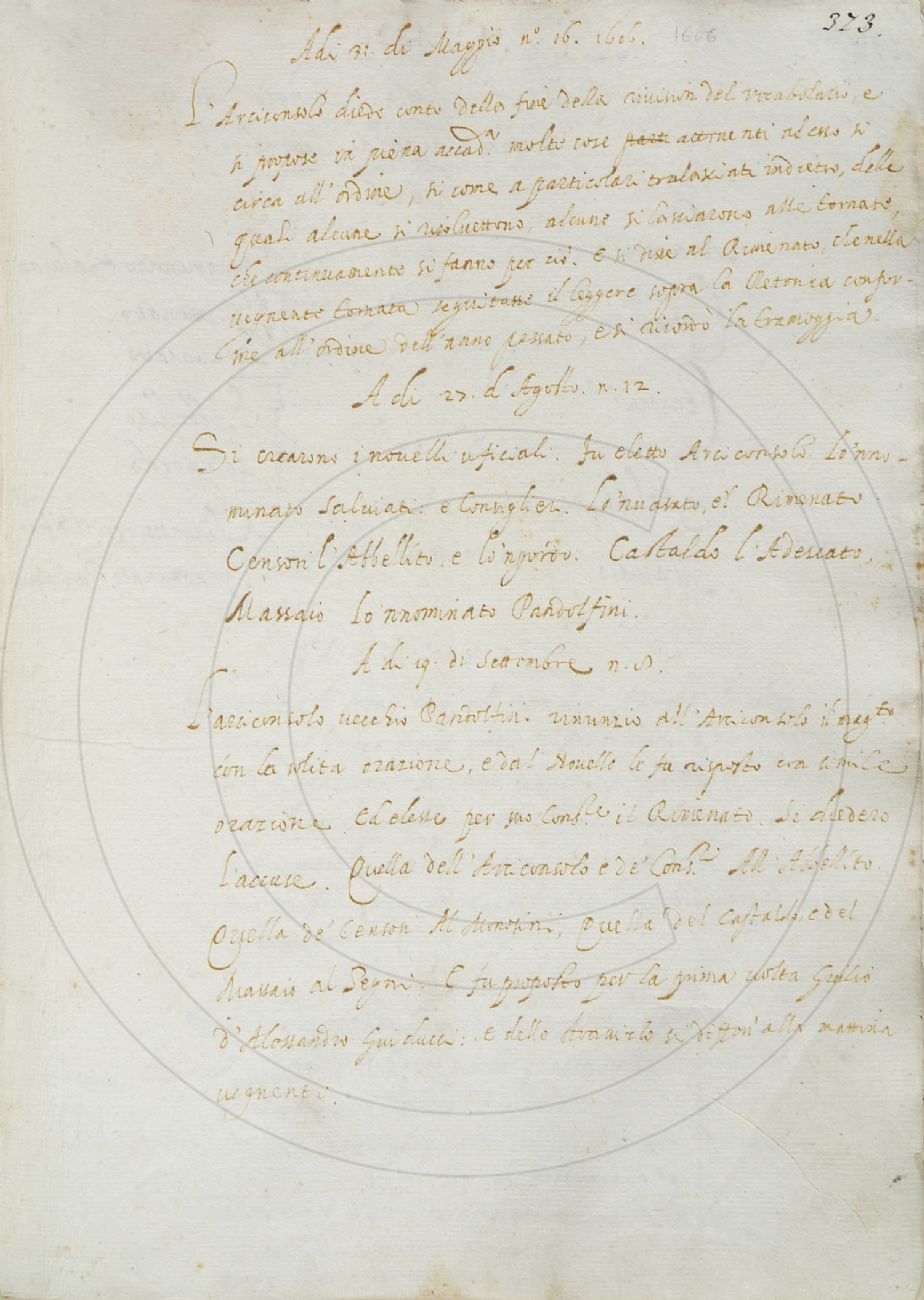 373.
Adi 31. di Maggio n.º 16. 1606. 1606
L'Arciconsolo diede conto della fine della revision del vocabolario, e
si propose in piena accad.ª molte cose part attenenti ad esso si
circa all'ordine, si come a particolari tralasciati indietro, delle
quali alcune si risoluettono, alcune si lasciarono alle tornate,
che continuamente si fanno per ciò. E si disse al Rimenato, che nella
uegnente tornata seguitasse il leggere sopra la Retorica confor-
me all'ordine dell'anno passato, e si ricordò la tramoggia.
A di 27. d'Agosto. n. 12.
Si crearono i nouelli uficiali. Fu eletto Arciconsolo. Lo'nno-
minato Saluiati: e Consiglieri. Lo'nuasato, e'l Rimenato
Censori l'Abbellito, e lo'ngordo. Castaldo l'Adescato,
Massaio lo'nnominato Pandolfini.
A di 19. di Settembre n. 8.
L'arciconsolo uecchio Pandolfini rinunziò all'Arciconsolo il mag.to
con la solita orazione, e dal Nouello le fu risposto con simile
orazione. Ed elesse per suo Cons.re il Rimenato. Si diedero
l'accuse. Quella dell'Arciconsolo e de' Cons.ri All'Abbellito.
Quella de' Censori Al Monosini, Quella del Castaldo, e del
Massaio al Segni. E fu proposto per la prima uolta Giulio
d'Alessandro Guiducci: E dello Strauizzo si differì alla mattina
uegnente.